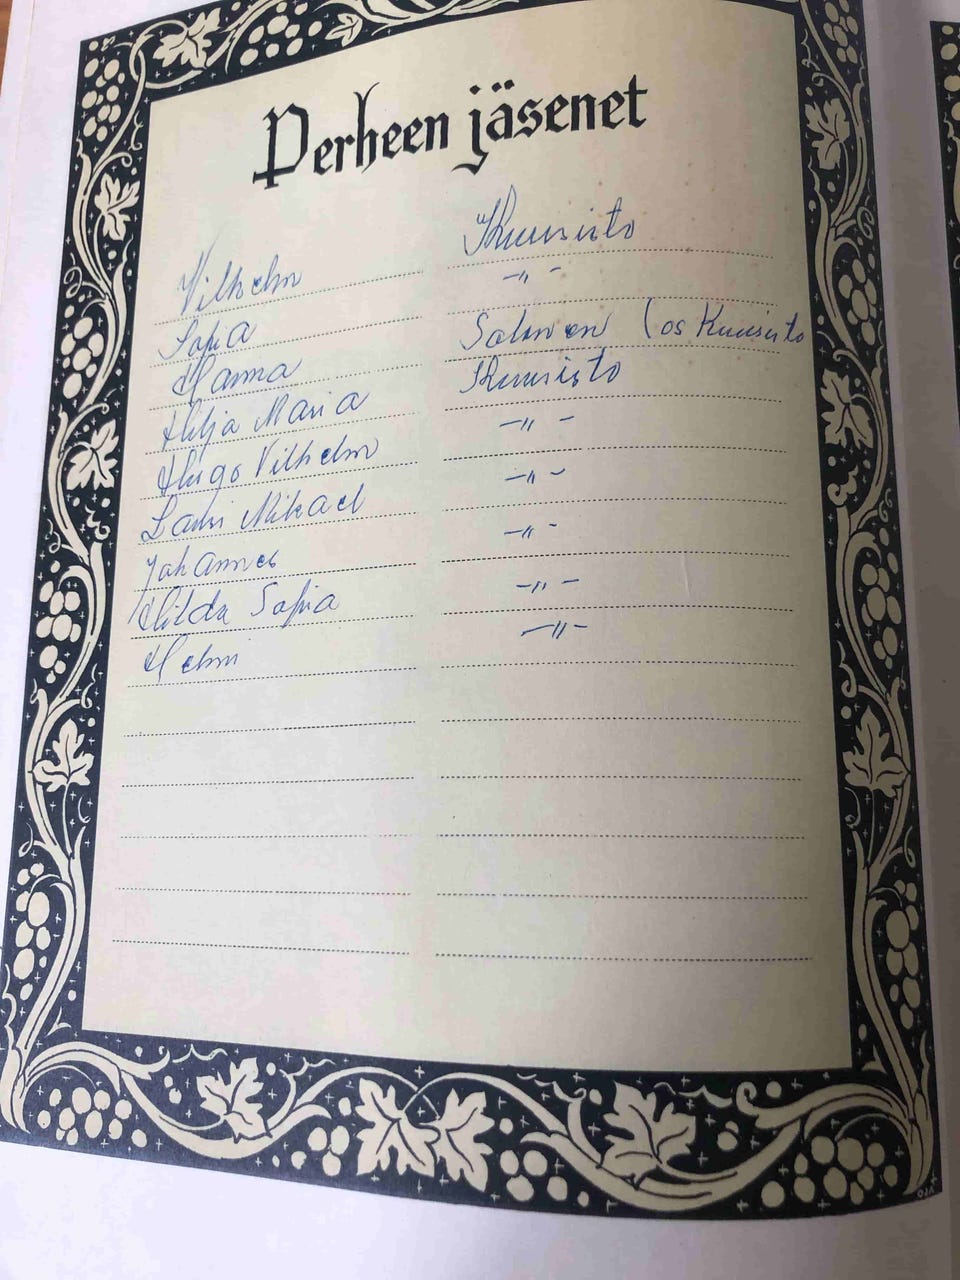 Perheen jäsenet
Vilhelm Kuusisto
Sofia -"-
Hanna Salmen (os Kuusisto
Hilja Maria Kuusisto
Hugo Vilhelm -"-
Lauri Mikael -"-
Johannes -"-
Hilda Sofia -"-
Helmi -"-